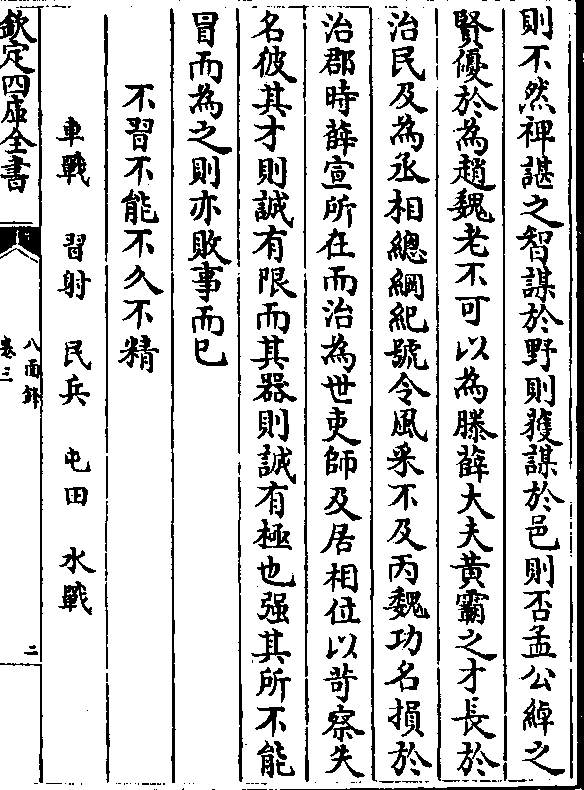 則不然裨諶之智謀於野則獲謀於邑則否孟公綽之
賢優於為趙魏老不可以為滕薛大夫黃霸之才長於
治民及為丞相總綱紀號令風采不及丙魏功名損於
治郡時薛宣所在而治為世吏師及居相位以苛察失
名彼其才則誠有限而其器則誠有極也强其所不能
冒而為之則亦敗事而已
不習不能不久不精
車戰 習射 民兵 屯田 水戰
欽定四庫全書
八面鋒
卷三
二